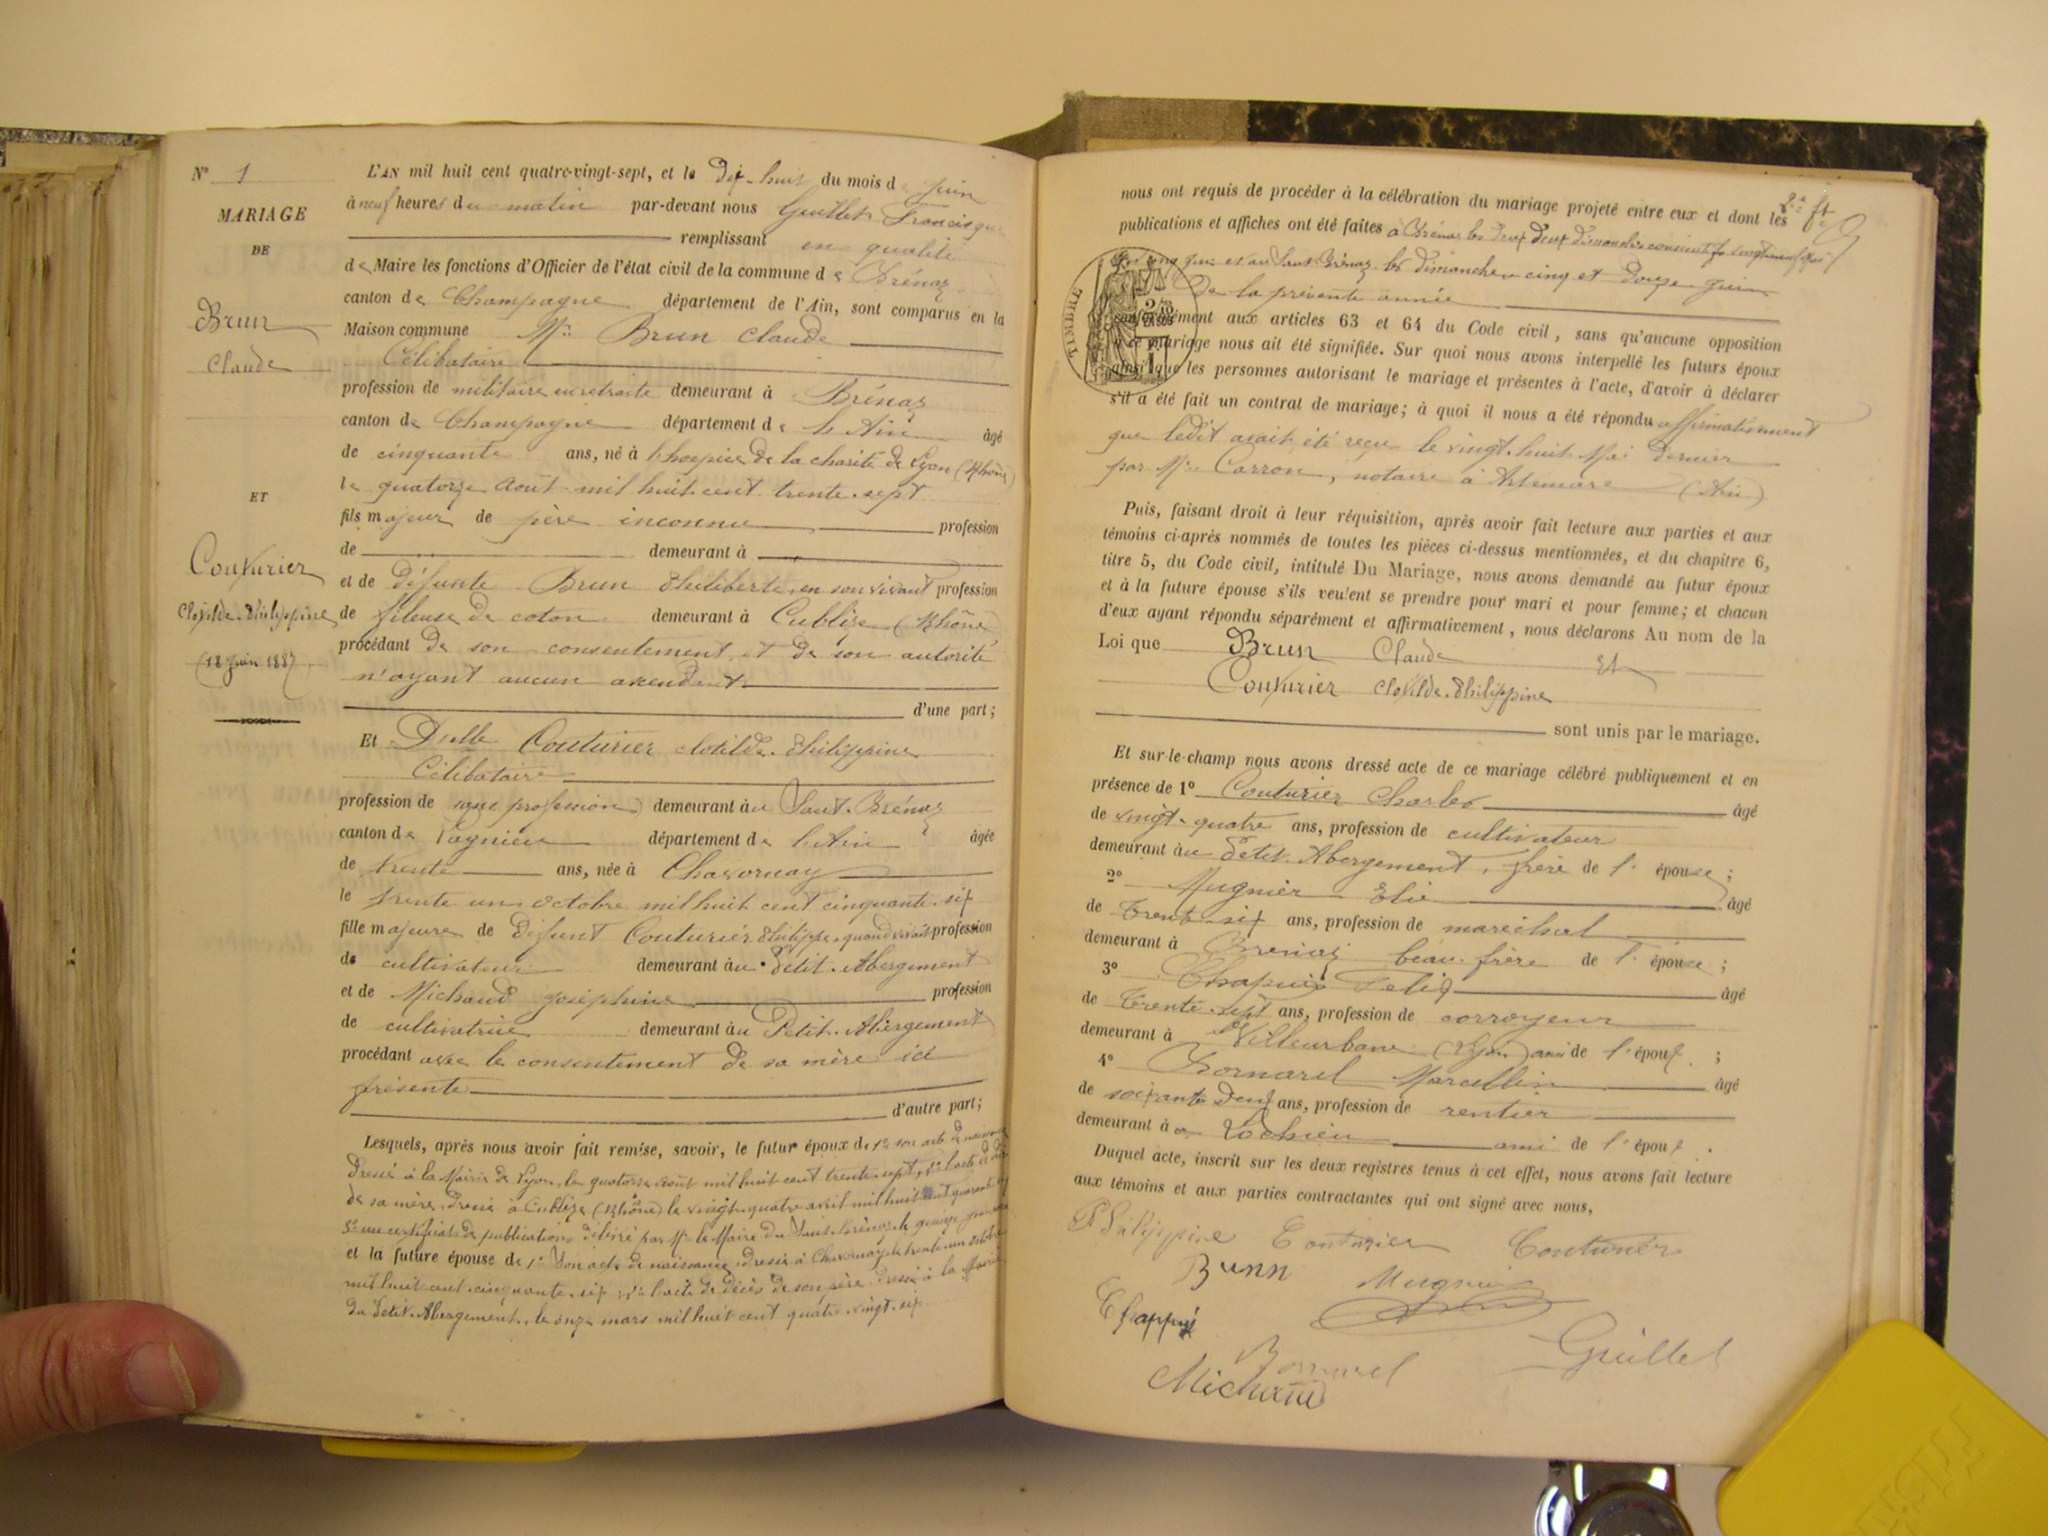 N° 1
MARIAGE
DE
Brun
Claude
ET
Couturier
Clotilde Philippine
(18 Juin 1887)
L'AN mil huit cent quatre-vingt-sept, et le Dix-huit du mois de Juin
à neuf heures du matin par-devant nous Guillet Francisque
remplissant en qualité
de Maire les fonctions d'Officier de l'état civil de la commune de Brénaz
canton de Champagne département de l'Ain, sont comparus en la
Maison commune Mr Brun Claude
Célibataire
profession de militaire en retraite demeurant à Brénaz
canton de Champagne département de l'Ain âgé
de cinquante ans, né à l'hospice de la charité de Lyon (Rhône)
le quatorze Août mil huit cent trente-sept
fils majeur de père inconnu profession
de demeurant à
et de défunte Brun Philiberte, en son vivant profession
de fileuse de coton demeurant à Cublize (Rhône)
procédant de son consentement et de son autorité
n'ayant aucun ascendant
d'une part;
Et Delle Couturier Clotilde Philippine
Célibataire
profession de sans profession demeurant au Sault-Brénaz
canton de Lagnieu département de l'Ain âgée
de trente ans, née à Chavornay
le trente un octobre mil huit cent cinquante-six
fille majeure de défunt Couturier Philippe, quand vivait profession
de cultivateur demeurant au Petit-Abergement
et de Michaud Joséphine profession
de cultivatrice demeurant au Petit-Abergement
procédant avec le consentement de sa mère ici
présente
d'autre part;
Lesquels, après nous avoir fait remise, savoir, le futur époux de 1° son acte de naissance
dressé à la Mairie de Lyon, le quatorze août mil huit cent trente-sept, 2° l'acte de décès
de sa mère, dressé à Cublize (Rhône) le vingt-quatre avril mil huit cent quarante
3° un certificat de publications délivré par Mr le Maire du Sault-Brénaz le quinze juin
et la future épouse de 1° Son acte de naissance dressé à Chavornay le trente un octobre
mil huit cent cinquante-six 2° l'acte de décès de son père dressé à la Mairie
du Petit-Abergement, le onze mars mil huit cent quatre-vingt-six
nous ont requis de procéder à la célébration du mariage projeté entre eux et dont les
publications et affiches ont été faites à Brénaz les deux deux dimanches consécutifs vingt neuf Mai
et cinq juin et au Sault-Brénaz les dimanches cinq et douze juin
de la présente année
TIMBRE
conformément aux articles 63 et 64 du Code civil, sans qu'aucune opposition
à ce mariage nous ait été signifiée. Sur quoi nous avons interpellé les futurs époux
ainsi que les personnes autorisant le mariage et présentes à l'acte, d'avoir à déclarer
s'il a été fait un contrat de mariage; à quoi il nous a été répondu affirmativement
que ledit avait été reçu le vingt-huit Mai dernier
par Me Carron, notaire à Artemare (Ain)
Puis, faisant droit à leur réquisition, après avoir fait lecture aux parties et aux
témoins ci-après nommés de toutes les pièces ci-dessus mentionnées, et du chapitre 6,
titre 5, du Code civil, intitulé Du Mariage, nous avons demandé au futur époux
et à la future épouse s'ils veulent se prendre pour mari et pour femme; et chacun
d'eux ayant répondu séparément et affirmativement, nous déclarons Au nom de la
Loi que Brun Claude et
Couturier Clotilde-Philippine
sont unis par le mariage.
Et sur-le-champ nous avons dressé acte de ce mariage célébré publiquement et en
présence de 1° Couturier Charles âgé
de vingt-quatre ans, profession de cultivateur
demeurant au Petit-Abergement, frère de l'épouse;
2° Mugnier Elie âgé
de Trente-six ans, profession de maréchal
demeurant à Brénaz beau-frère de l'épouse;
3° Chapuis Félix âgé
de Trente-sept ans, profession de corroyeur
demeurant à Villeurbane (Lyon) ami de l'époux;
4° Bornarel Marcellin âgé
de soixante deux ans, profession de rentier
demeurant à Lochieu ami de l'époux.
Duquel acte, inscrit sur les deux registres tenus à cet effet, nous avons fait lecture
aux témoins et aux parties contractantes qui ont signé avec nous,
Philippine Couturier Couturier
Brun Mugnier
Chappuis
Bornarel Guillet
Michaud